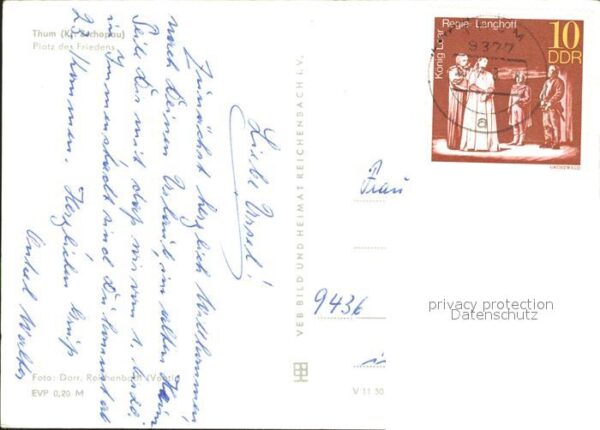 Thum (Kr. Zschopau)
Platz des Friedens
Liebe Ursel!
Zunächst herzlich Willkommen
nach Deinen Urlaub im alten Heim
Teile Dir mit daß wir vom 1.
in sind Du kannst ab
2. kommen. Herzlichen Gruß
Onkel Walter
Foto: Darr, Reichenbach (Vogtl)
EVP 0,20 M
VEB BILD UND HEIMAT REICHENBACH I. V.
V 11 30
König Lear Regie: Langhoff
10
DDR
9377
a
Frau
9436
in
privacy protection
Datenschutz